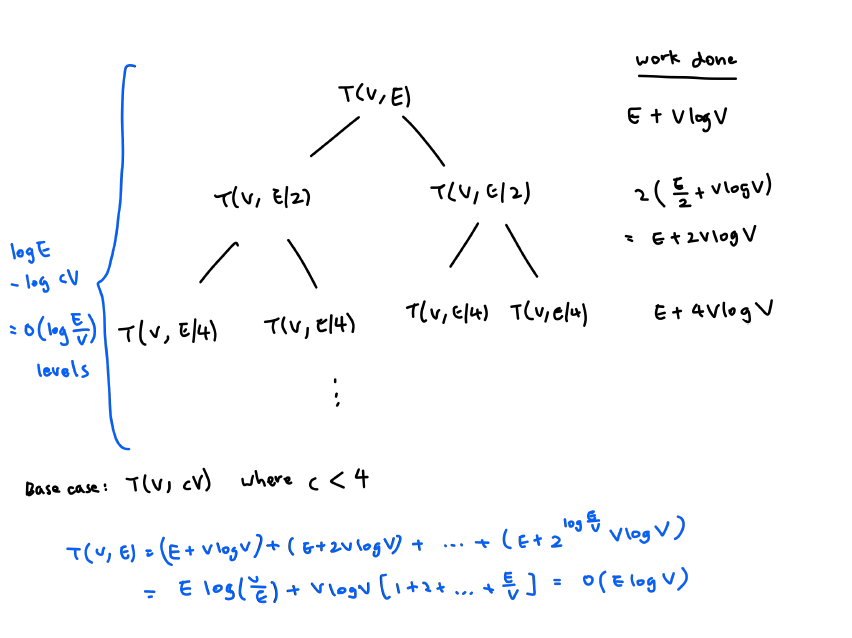 work done
T(V, E)
E + V log V
T(V, E/2) T(V, E/2)
2(E/2 + V log V)
= E + 2V log V
log E
- log cV
= O(log E/V)
levels
T(V, E/4) T(V, E/4) T(V, E/4) T(V, E/4)
E + 4V log V
⋮
Base case: T(V, cV) where c < 4
T(V, E) = (E + V log V) + (E + 2V log V) + ... + (E + 2^{log E/V} V log V)
= E log(V/E) + V log V [1 + 2 + ... + E/V] = O(E log V)